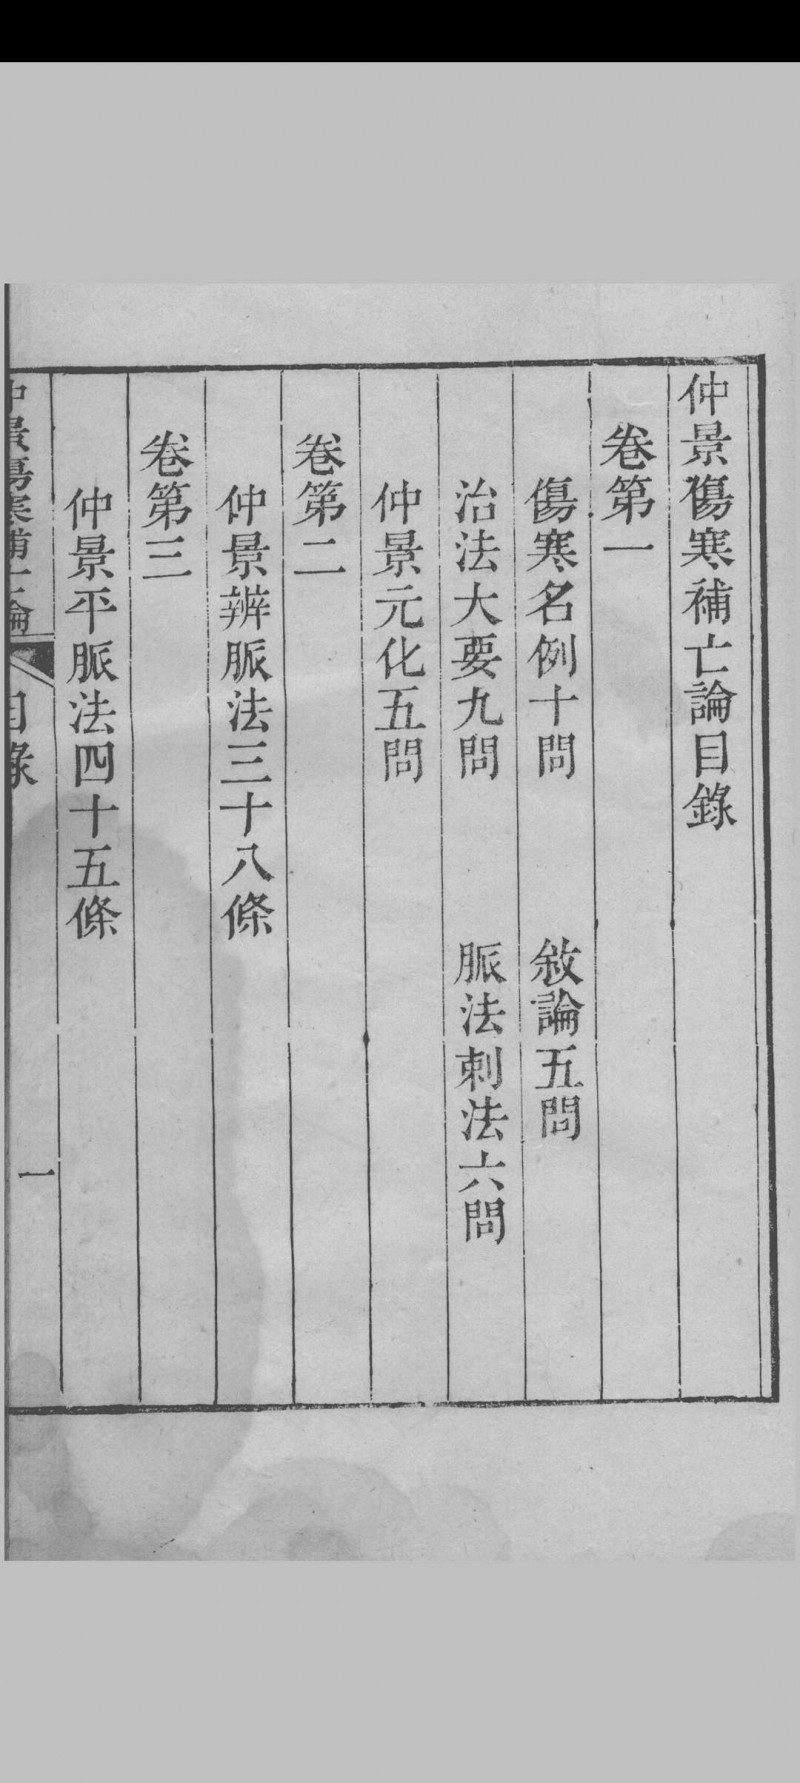 仲景傷寒補亡論目錄
卷第一
傷寒名例十問　敘論五問
治法大要九問　脈法刺法六問
仲景元化五問
卷第二
仲景辨脈法三十八條
卷第三
仲景平脈法四十五條
仲景傷寒補亡論　目錄　一